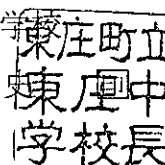 東庄町立
東庄中
学校長